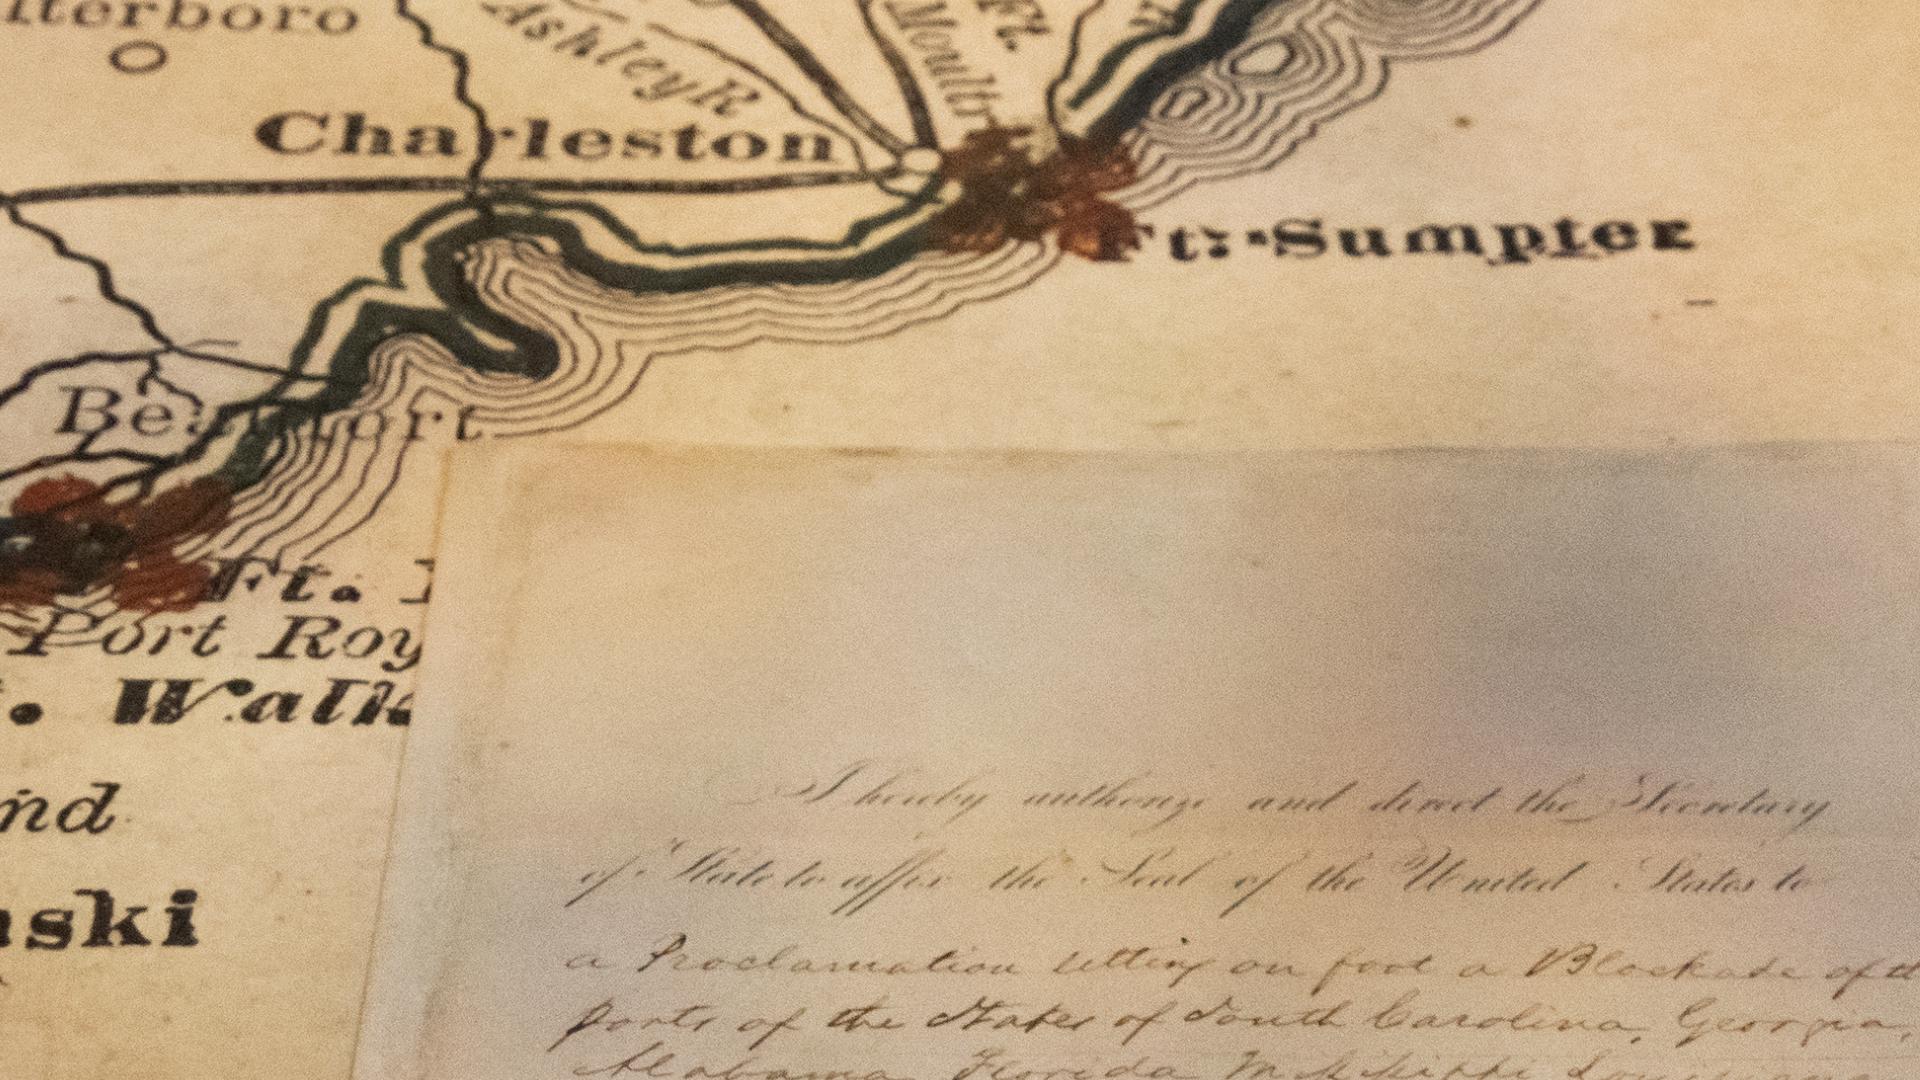 terboro
Ashley R
Ft.
Moultr
Charleston
Ft. Sumpter
Beaufort
Ft.
Port Roy
. Walk
nd
aski
I hereby authorize and direct the Secretary
of State to affix the Seal of the United States to
a Proclamation setting on foot a Blockade of th
ports of the States of South Carolina, Georgia,
Alabama Florida Mississippi Louisiana